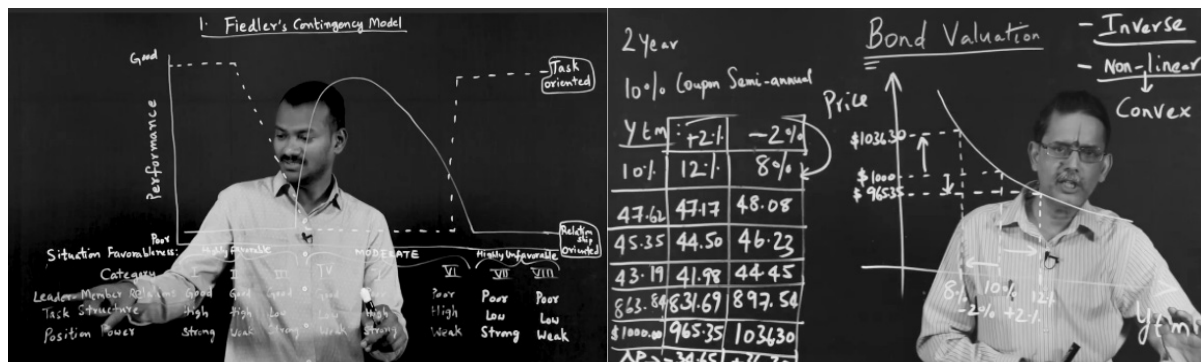 1. Fiedler's Contingency Model
Good
Task
oriented
Performance
Poor
Relation
ship
Oriented
Situation Favorableness: Highly Favorable MODERATE Highly Unfavorable
Category I II III IV VI VII VIII
Leader-Member Relations Good Good Good Good Poor Poor Poor
Task Structure High High Low Low High High Low Low
Position Power Strong Weak Strong Weak Strong Weak Strong Weak
2 Year
10% Coupon Semi-annual
Ytm : +2% -2%
10% 12% 8%
47.62 47.17 48.08
45.35 44.50 46.23
43.19 41.98 44.45
863.84 831.69 897.54
$1000.00 965.35 1036.30
Bond Valuation
- Inverse
- Non-linear
Convex
Price
$1036.30
$1000
$965.35
8% 10% 12%
-2% +2%
Ytm